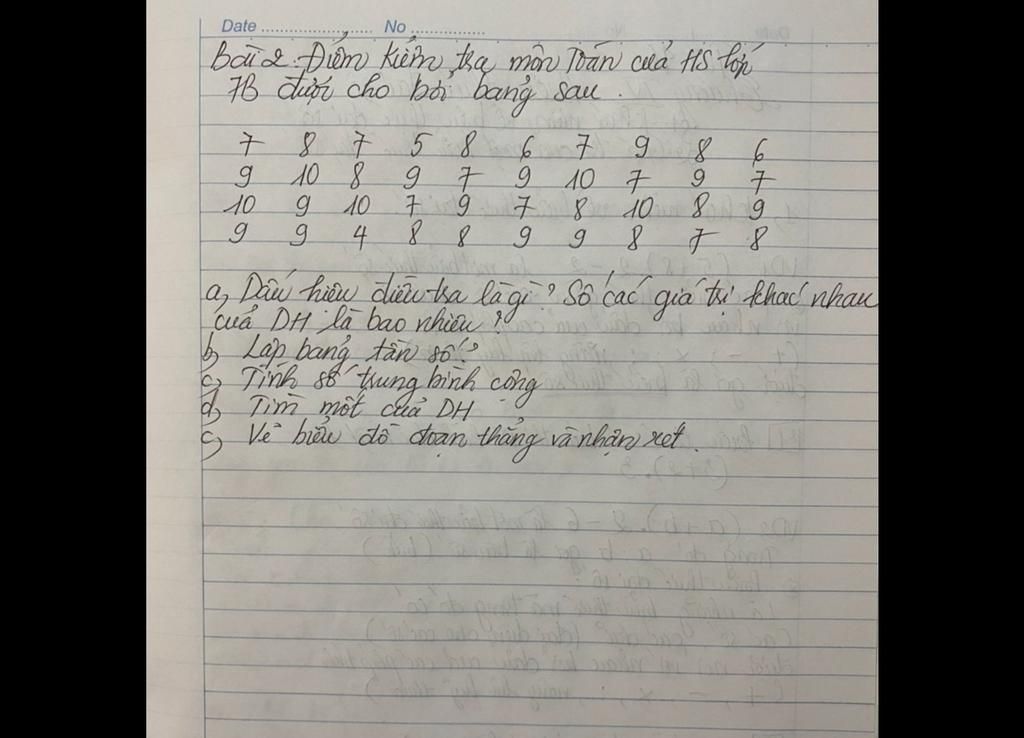 Date ........................ No ................
Bài 2: Điểm kiểm tra môn Toán của HS lớp
7B được cho bởi bảng sau.
7 8 7 5 8 6 7 9 8 6
9 10 8 9 7 9 10 7 9 7
10 9 10 7 9 7 8 10 8 9
9 9 4 8 8 9 9 8 7 8
a, Dấu hiệu điều tra là gì? Số các giá trị khác nhau
của DH là bao nhiêu?
b, Lập bảng tần số?
c, Tính số trung bình cộng
d, Tìm mốt của DH
c, Vẽ biểu đồ đoạn thẳng và nhận xét.